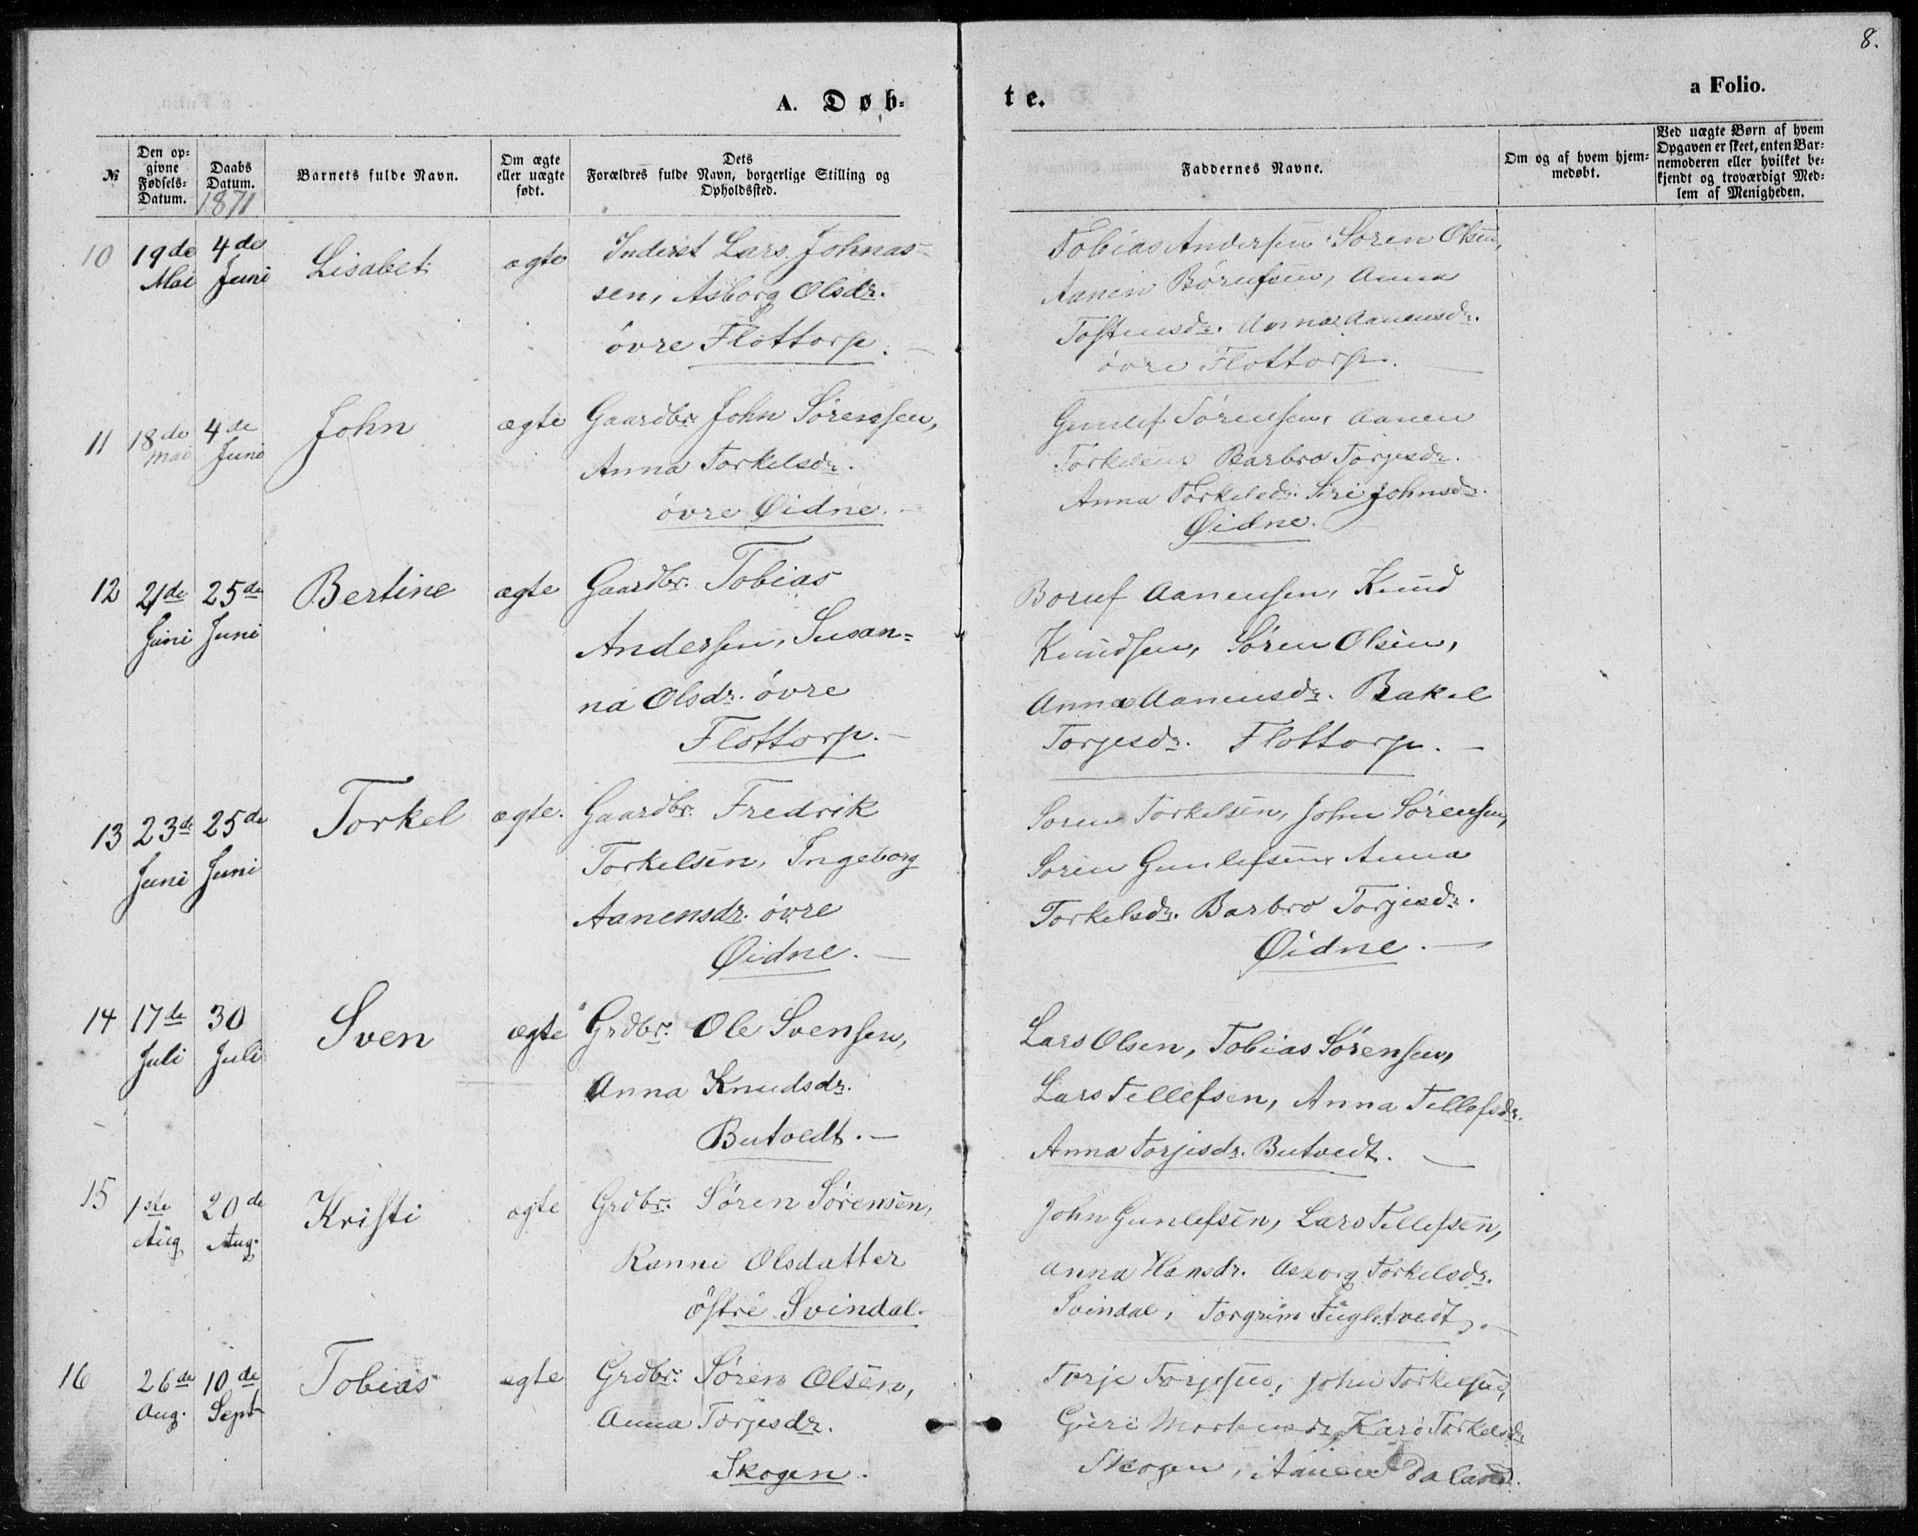 8.
A. Døb-
te.
a Folio.
№
Den op-
givne
Fødsels-
Datum.
Daabs
Datum.
1871
Barnets fulde Navn.
Om ægte
eller uægte
født.
Dets
Forældres fulde Navn, borgerlige Stilling og
Opholdssted.
Faddernes Navne.
Om og af hvem hjem-
medøbt.
Ved uægte Børn af hvem
Opgaven er skeet, enten Bar-
nemoderen eller hvilket be-
kjendt og troværdigt Med-
lem af Menigheden.
10
19de
Mai
4de
Juni
Lisabet
ægte
Inderst Lars Johnas-
sen, Asborg Olsdr.
øvre Flottorp.
Tobias Andersen Søren Olsen,
Aanen Børufsen, Anna
Tostensdr. Anna Aanensdr.
øvre Flottorp.
11
18de
Mai
4de
Juni
John
ægte
Gaardbr. John Sørensen,
Anna Torkelsdr.
øvre Øidne.
Gunlef Sørensen, Aanen
Torkelsen Barbro Torjesdr.
Anna Torkelsdr. Siri Johnsdr.
Øidne.
12
21de
Juni
25de
Juni
Bertine
ægte
Gaardbr. Tobias
Andersen, Susan=
na Olsdr. øvre
Flottorp.
Boruf Aanensen, Knud
Knudsen, Søren Olsen,
Anna Aanensdr. Rakel
Torjesdr. Flottorp.
13
23de
Juni
25de
Juni
Torkel
ægte.
Gaardbr. Fredrik
Torkelsen, Ingeborg
Aanensdr. øvre
Øidne.
Søren Torkelsen, John Sørensen,
Søren Gunlefsen, Anna
Torkelsdr. Barbro Torjesdr.
Øidne.
14
17de
Juli
30
Juli
Sven
ægte
Grdbr. Ole Svensen,
Anna Knudsdr.
Butvedt.
Lars Olsen, Tobias Sørensen,
Lars Tellefsen, Anna Tellefsdr.
Anna Torjesdr. Butvedt.
15
1ste
Aug
20de
Aug.
Kristi
ægte
Grdbr. Søren Sørensen,
Ranni Olsdatter
østre Svindal.
John Gunlefsen, Lars Tellefsen,
Anna Hansdr. Asborg Torkelsdr.
Svindal, Torgrim Fugletvedt.
16
26de
Aug.
10de
Sept
Tobias
ægte
Grdbr. Søren Olsen,
Anna Torjesdr.
Skogen.
Torje Torjesen, John Torkelsen,
Guri Mortensdr, Kari Torkelsdr
Skogen, Aanen Daland.